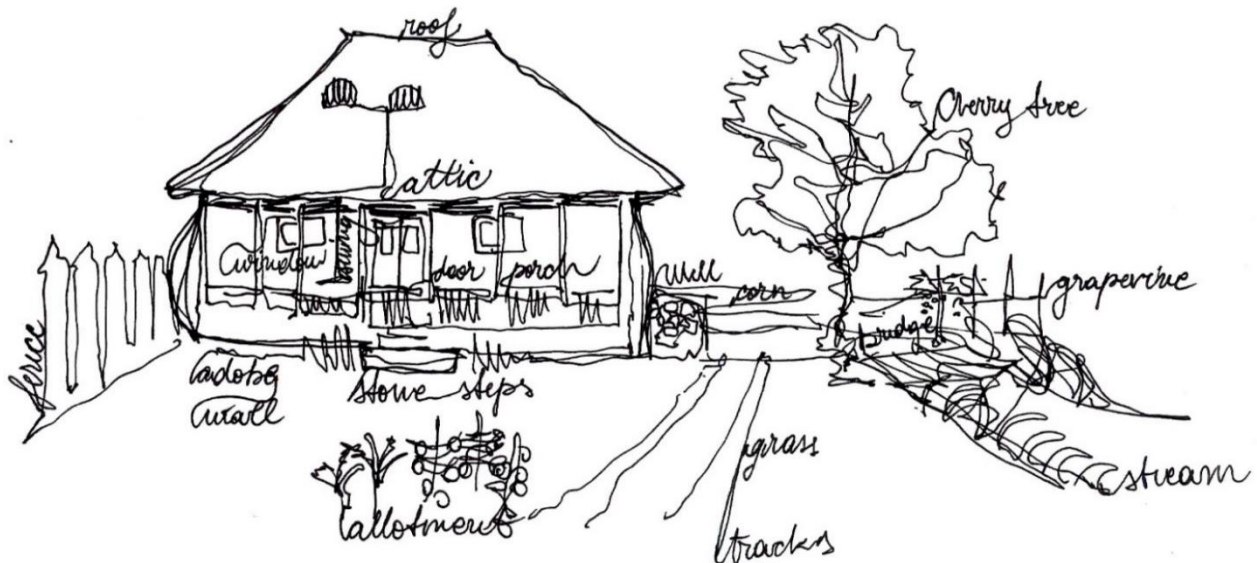 roof
Cherry tree
attic
window
door porch
well
corn
grapevine
bridge
fence
adobe
wall
stone steps
grass
stream
allotment
tracks